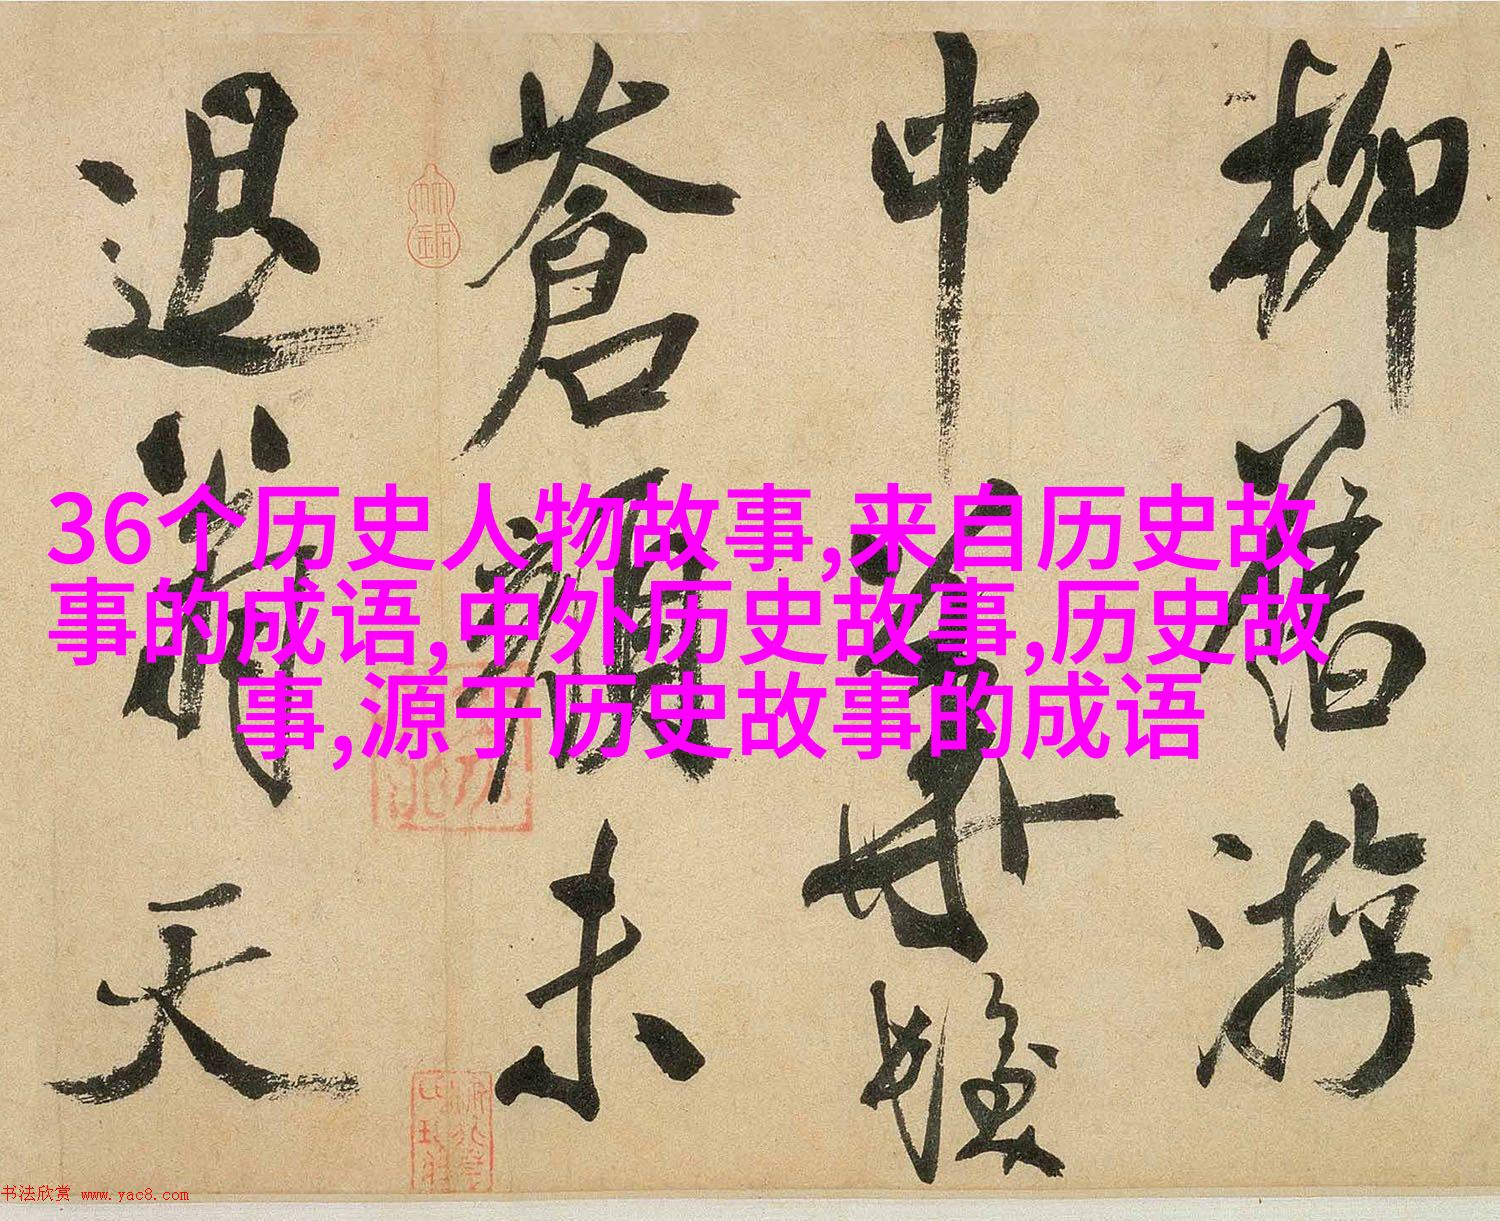 36个历史人物故事,来自历史故
事的成语,中外历史故事,历史故
事,源于历史故事的成语
柳舊游
中
蒼顏未
退天
书法欣赏 www.yac8.com